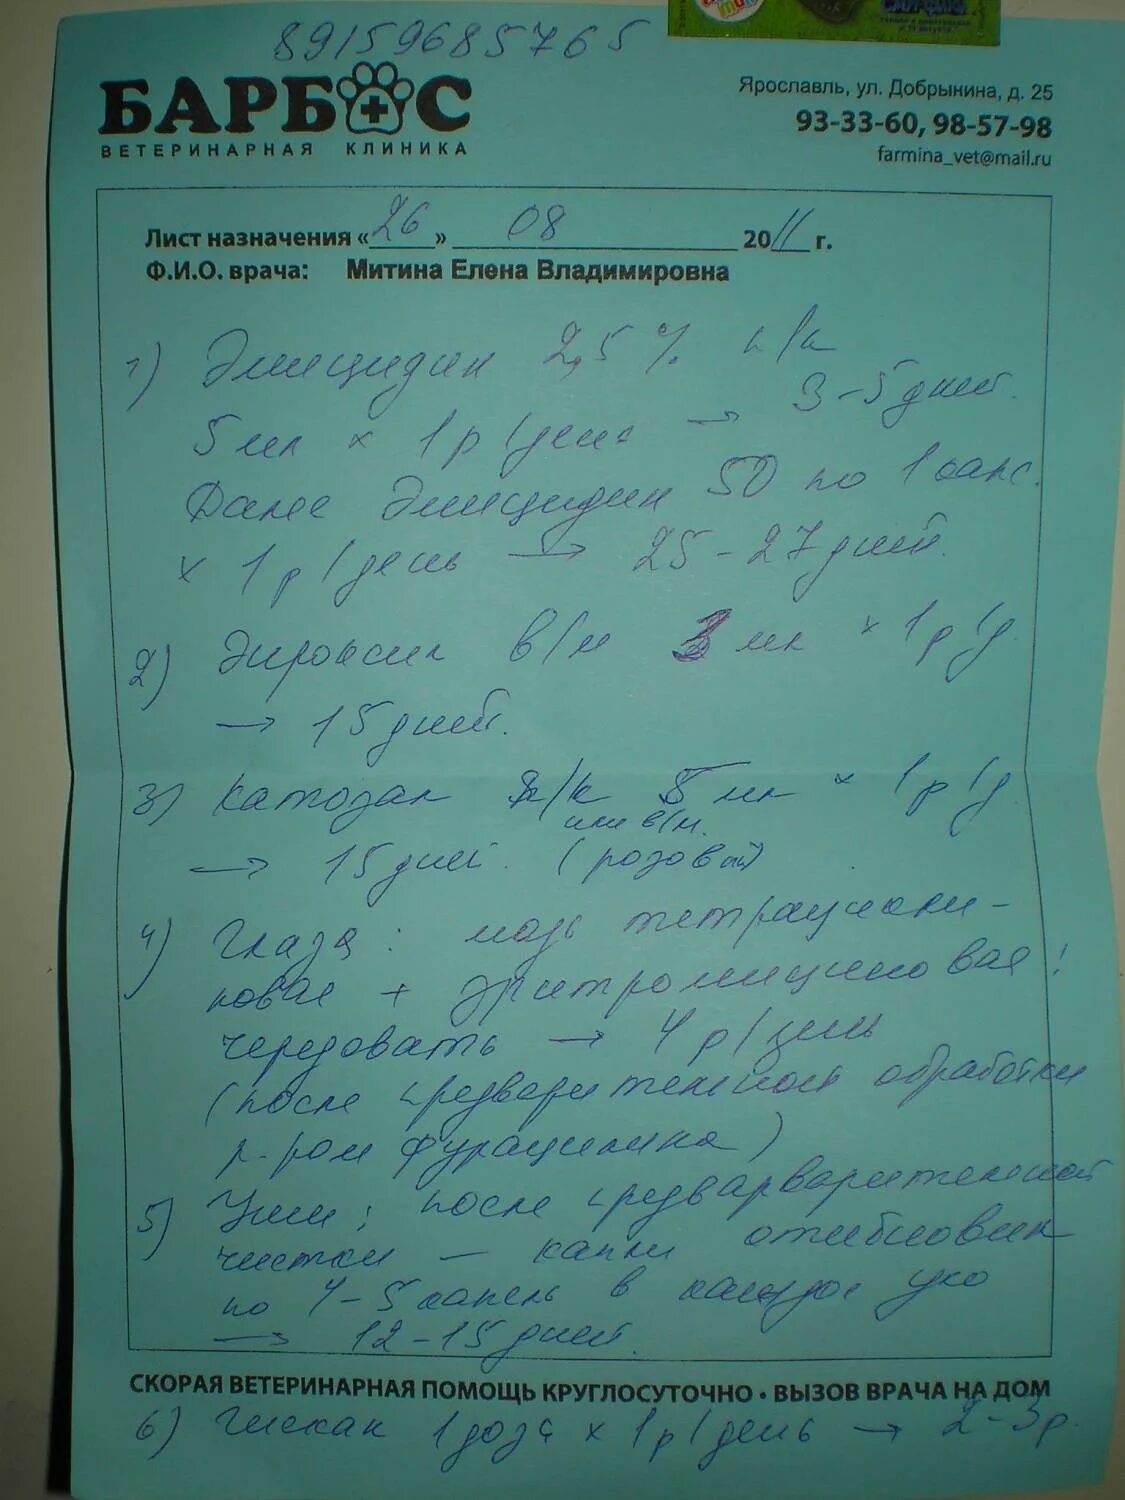 89159685765
БАРБОС
ВЕТЕРИНАРНАЯ КЛИНИКА
Ярославль, ул. Добрынина, д. 25
93-33-60, 98-57-98
farmina_vet@mail.ru
Лист назначения «26» 08 2011 г.
Ф.И.О. врача: Митина Елена Владимировна
1) Эмицидин 2,5% п/к
5 мл × 1 р/день → 3-5 дней.
Далее Эмицидин 50 по 1 капс.
× 1 р/день → 25-27 дней.
2) в/м мл × 1 р/д.
→ 15 дней.
3) Катозал п/к 5 мл × 1 р/д
или в/м.
→ 15 дней. (розовый)
4) Глаза: мазь тетрацикли-
новая + эритромициновая!
чередовать → 4 р/день
(после предварительной обработки
р-ром фурацилина)
5) Уши: после предварварительной
чистки – капли отибиовин
по 4-5 капель в каждое ухо
→ 12-15 дней.
СКОРАЯ ВЕТЕРИНАРНАЯ ПОМОЩЬ КРУГЛОСУТОЧНО • ВЫЗОВ ВРАЧА НА ДОМ
6) Гискан 1 доза × 1 р/день → 2-3 р.